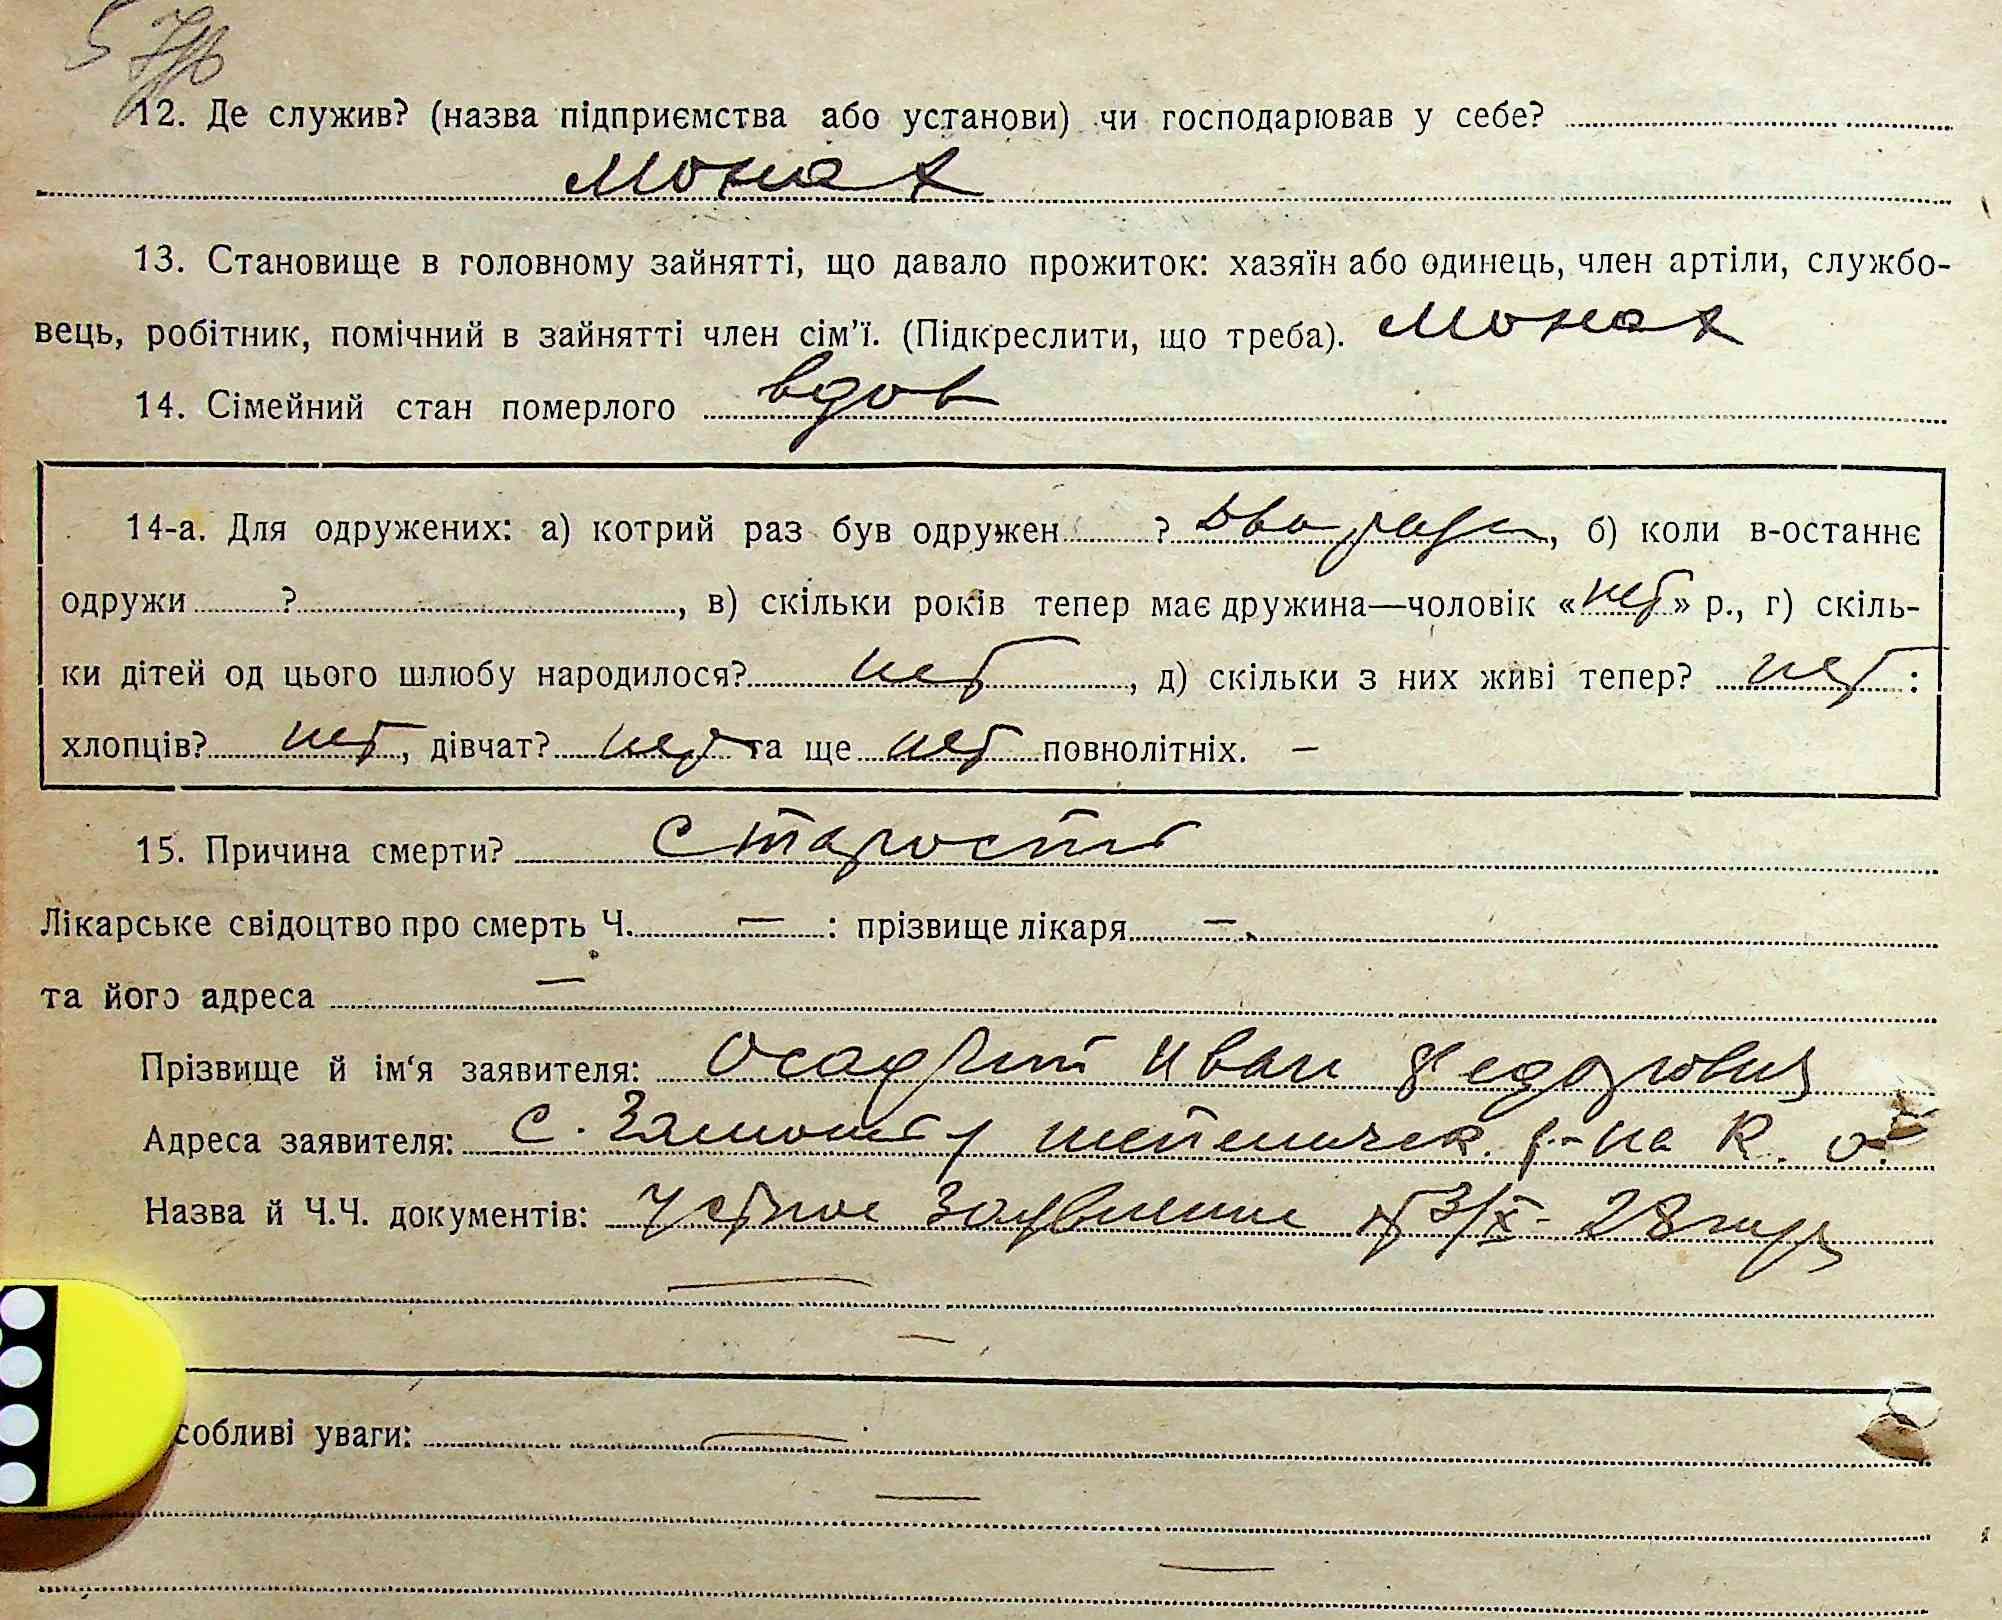 12. Де служив? (назва підприємства або установи) чи господарював у себе?
Монах
13. Становище в головному зайнятті, що давало прожиток: хазяїн або одинець, член артіли, службо-
вець, робітник, помічний в зайнятті член сім'ї. (Підкреслити, що треба). Монах
14. Сімейний стан померлого вдов
14-а. Для одружених: а) котрий раз був одружен ? Два раза, б) коли в-останнє
одружи ? , в) скільки років тепер має дружина—чоловік «нет» р., г) скіль-
ки дітей од цього шлюбу народилося? нет, д) скільки з них живі тепер? нет :
хлопців? нет, дівчат? нет та ще нет повнолітніх. —
15. Причина смерти? Старость
Лікарське свідоцтво про смерть Ч. — : прізвище лікаря —
та його адреса —
Прізвище й ім'я заявителя: Осадчий Иван Федорович
Адреса заявителя: С. Замостя р-на К. о.
Назва й Ч.Ч. документів: Устное заявление от 3/X- 28 года
собливі уваги: —